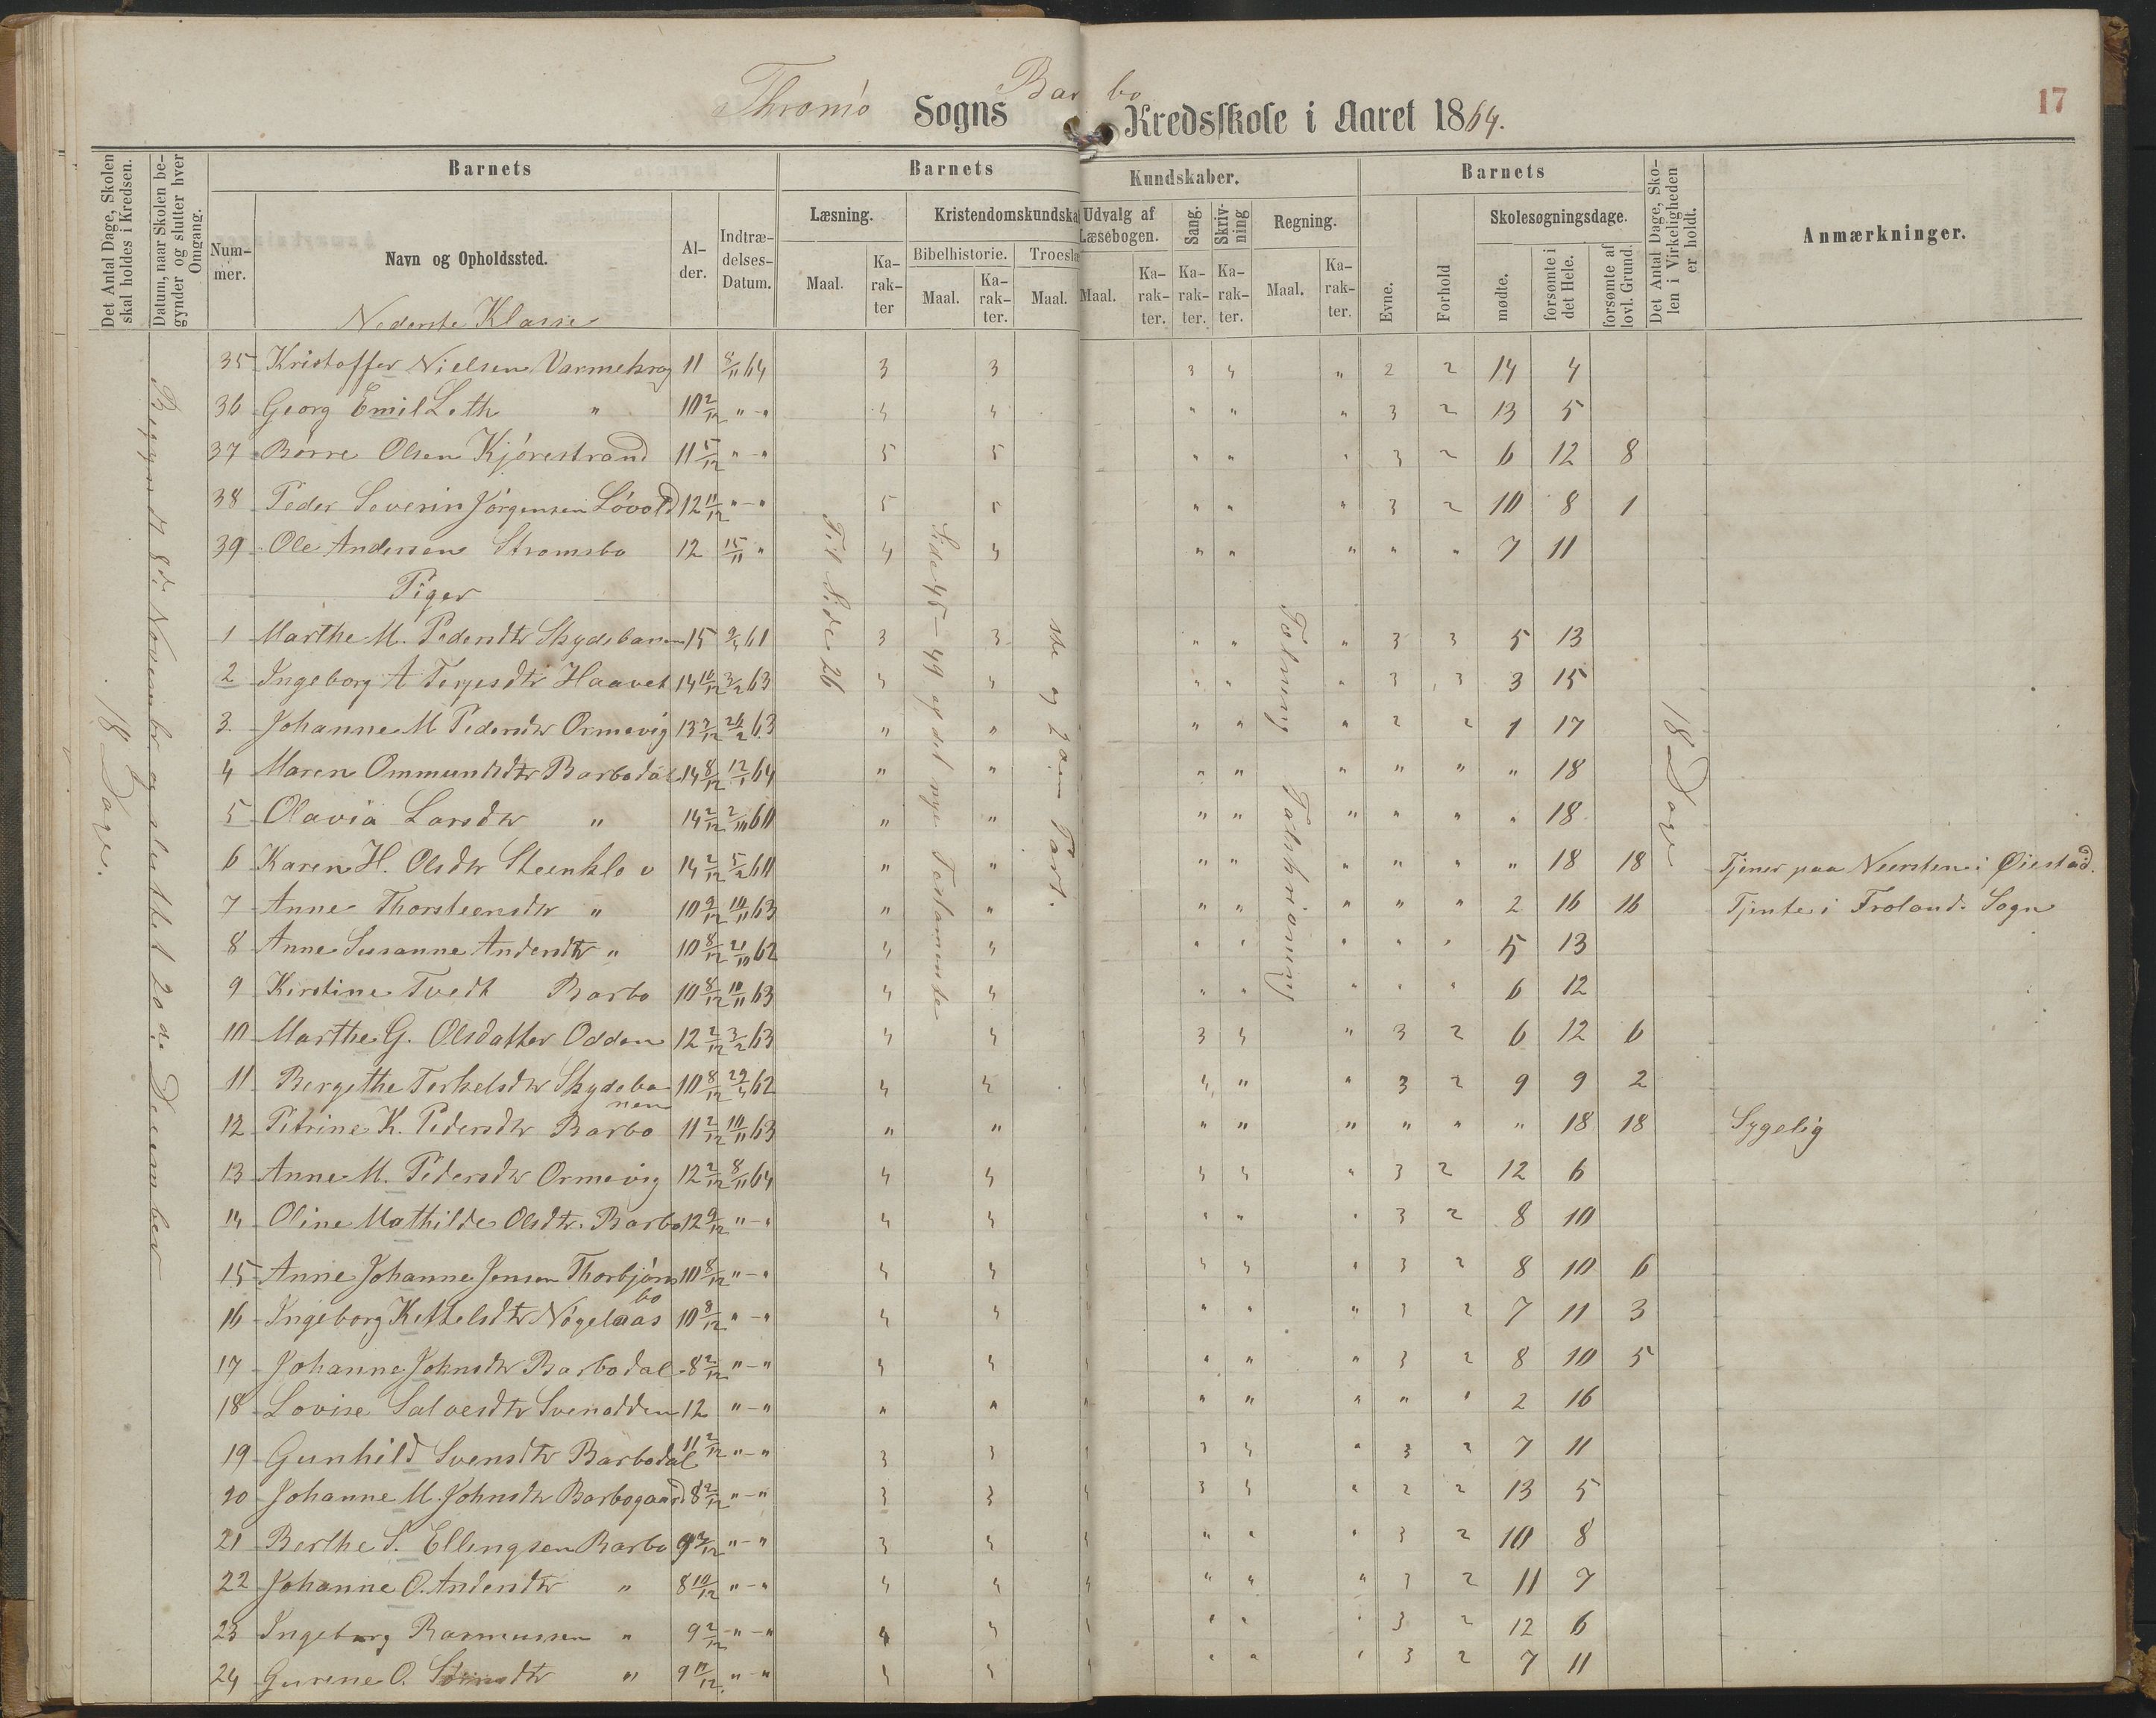 Thromø Sogns Barbo Kredsskole i Aaret 1864.
17
Det Antal Dage, Skolen skal holdes i Kredsen.
Datum, naar Skolen begynder og slutter hver Omgang.
Barnets
Barnets Kundskaber.
Barnets
Det Antal Dage, Skolen i Virkeligheden er holdt.
Anmærkninger.
Nummer.
Navn og Opholdssted.
Alder.
Indtrædelses-Datum.
Læsning.
Kristendomskundska
Udvalg af Læsebogen.
Sang.
Skrivning
Regning.
Evne.
Forhold
Skolesøgningsdage.
Bibelhistorie.
Troeslæ
Maal.
Karakter
Maal.
Karakter.
Maal.
Maal.
Karakter.
Karakter.
Karakter.
Maal.
Karakter.
mødte.
forsømte i det Hele.
forsømte af lovl. Grund.
Nederste Klasse
35 Kristoffer Nielsen Varmekrog 11 8/11 64 3 3 3 4 " 2 2 14 4
36 Georg Emil Leth " 10 2/12 " - " 4 4 " " " 3 2 13 5
37 Børre Olsen Kjørestrand 11 5/12 " - " 5 5 " " " 3 2 6 12 8
38 Peder Severin Jørgensen Løvold 12 11/12 " - " 5 5 " " " 3 2 10 8 1
39 Ole Andersen Strømsbo 12 15/11 " 4 4 " " " " " 7 11
Piger
1 Marthe M. Pedersdtr Skydebanen 15 2/4 61 3 3 " " " 3 3 5 13
2 Ingeborg A Terjesdtr Haavet 14 10/12 3/2 63 4 4 " " " 3 3 3 15
3. Johanne M Pedersdtr Ormevig 13 2/12 26/2 63 " " " " " 2 2 1 17
4 Maren Ommundsdtr Barbodal 14 8/12 12/1 64 " " " " " " " " 18
5 Olavia Larsdtr " 14 2/12 2/10 60 " " " " " " " " 18
6 Karen H. Olsdtr Steenklev 14 2/12 5/2 60 " " " " " " " " 18 18 Tjener paa Neersten i Øiestad.
7 Anne Thorsteensdtr " 10 9/12 10/11 63 " " " " " " " 2 16 16 Tjente i Frolands Sogn
8 Anne Susanne Andersdtr " 10 8/12 21/10 62 4 4 " " " " " 5 13
9 Kirstine Tvedt Barbo 10 8/12 10/11 63 4 4 " " " " " 6 12
10 Marthe G. Olsdatter Odden 12 2/12 3/2 63 4 4 3 4 " 3 2 6 12 6
11 Bergethe Terkelsdtr Skydebanen 10 8/12 29/4 62 4 4 4 " " 3 2 9 9 2
12 Petrine K. Pedersdtr Barbo 11 2/12 10/11 63 " " " " " " " " 18 18 Sygelig
13 Anne M. Pedersdtr Ormevig 12 2/12 8/11 64 4 4 4 4 " 3 2 12 6
14 Oline Mathilde Olsdtr. Barbo 12 9/12 " - " 4 4 " " " 3 2 8 10
15 Anne Johanne Jensen Thorbjørnsbo 10 8/12 " - " 4 4 4 4 " 3 2 8 10 6
16 Ingeborg Kettelsdtr Nøgelaas 10 8/12 " - " 4 4 " " " 3 2 7 11 3
17 Johanne Johnsdtr Barbodal 8 2/12 " - " 4 4 " " " 3 2 8 10 5
18 Lovise Salvesdtr Svenodden 12 " - " " " " " " " " 2 16
19 Gunhild Svensdtr Barbodal 11 2/12 " - " 3 3 3 4 " 3 2 7 11
20 Johanne M. Johnsdtr Barbogaard 8 2/12 " - " 3 3 3 4 " 2 2 13 5
21 Berthe S. Ellingsen Barbo 9 3/12 " - " 3 4 " " " 3 2 10 8
22 Johanne O. Andersdtr " 8 10/12 " - " 4 4 " " " 3 2 11 7
23 Ingeborg Rasmussen " 9 2/12 " - " 4 4 " " " 3 2 12 6
24 Gurine O. " 9 11/12 " - " 4 4 " " " 3 2 7 11
18 Dage.
Begyndt 8de November og sluttet 20de December
Til Side 26
Side 45-49 af det nye Testamente
ste og 2den Part.
Tælning Talskrivning
18 Dage